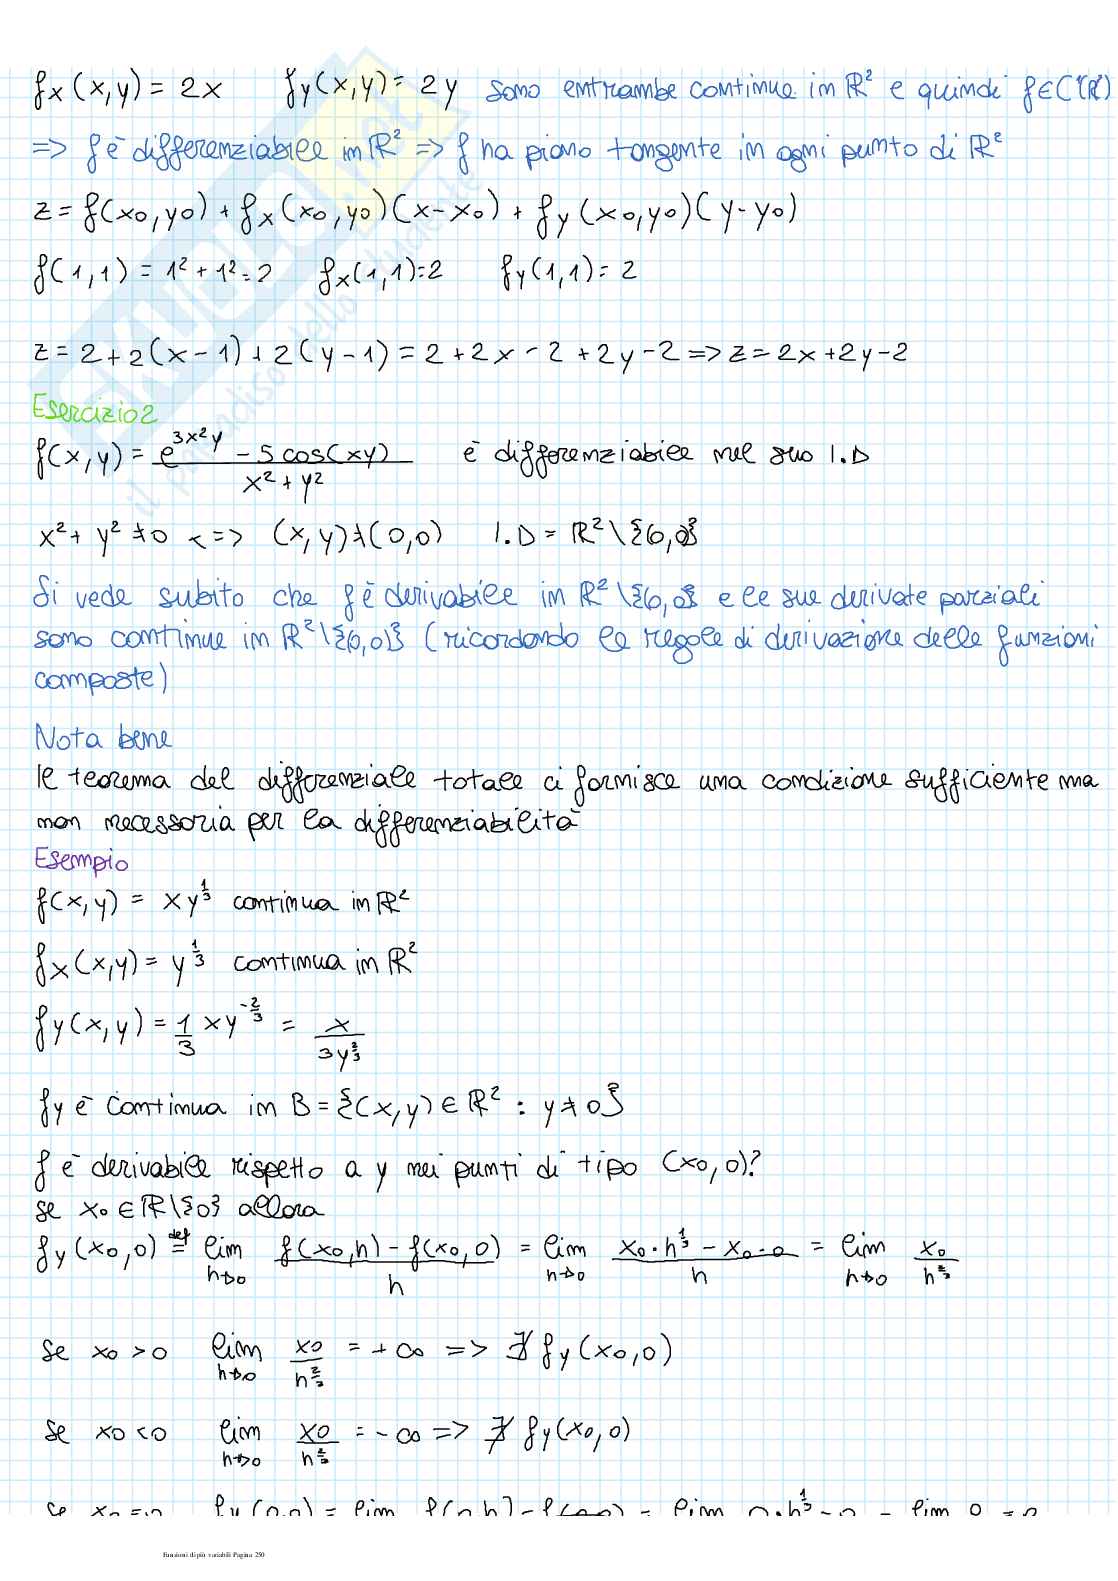 fx(x,y) = 2x fy(x,y) = 2y sono entrambe continue in ℝ² e quindi f∈C¹(ℝ²)
=> f è differenziabile in ℝ² => f ha piano tangente in ogni punto di ℝ²
z = f(x0,y0) + fx(x0,y0)(x-x0) + fy(x0,y0)(y-y0)
f(1,1) = 1² + 1² = 2 fx(1,1)=2 fy(1,1)= 2
z = 2+2(x-1)+2(y-1) = 2+2x-2+2y-2 => z = 2x+2y-2
Esercizio2
f(x,y) = (e^(3x²y) - 5cos(xy))/(x²+y²) è differenziabile nel suo I.D
x²+y² ≠0 <=> (x,y)≠(0,0) I.D = ℝ²\{0,0}
Si vede subito che f è derivabile in ℝ²\{0,0} e le sue derivate parziali
sono continue in ℝ²\{0,0} (ricordando le regole di derivazione delle funzioni
composte)
Nota bene
Il teorema del differenziale totale ci fornisce una condizione sufficiente ma
non necessaria per la differenziabilità
Esempio
f(x,y) = xy^(1/3) continua in ℝ²
fx(x,y) = y^(1/3) continua in ℝ²
fy(x,y) = 1/3 xy^(-2/3) = x/(3y^(2/3))
fy è continua in B = {(x,y) ∈ ℝ² : y≠0}
f è derivabile rispetto a y nei punti di tipo (x0,0)?
se x0 ∈ ℝ\{0} allora
fy(x0,0) =^def lim h→0 (f(x0,h) - f(x0,0))/h = lim h→0 (x0·h^(1/3) - x0·0)/h = lim h→0 x0/h^(2/3)
se x0 >0 lim h→0 x0/h^(2/3) = +∞ => ∄ fy(x0,0)
se x0 <0 lim h→0 x0/h^(2/3) = -∞ => ∄ fy(x0,0)
se x0 =0 fy(0,0) = lim f(0,h)-f(0,0) = lim 0·h^(1/3)-0 = lim 0 = 0
Funzioni di più variabili Pagina 250
SKUOLA.net
il paradiso dello studente